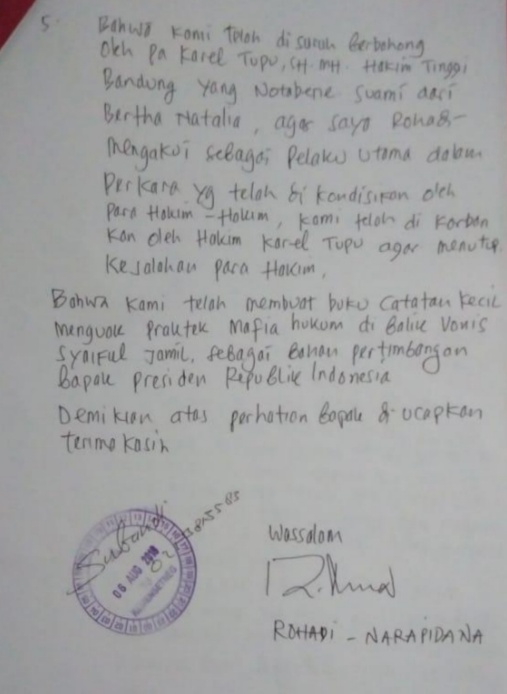 5. Bahwa kami telah di suruh berbohong
oleh Pa Karel Tupu, SH. MH. Hakim Tinggi
Bandung yang Notabene suami dari
Bertha Natalia, agar saya Rohadi
mengakui sebagai pelaku utama dalam
Perkara yg telah di kondisikan oleh
Para Hakim - Hakim, kami telah di korban
kan oleh Hakim Karel Tupu agar menutup
Kesalahan para Hakim.
Bahwa kami telah membuat buku Catatan Kecil
menguak Praktek Mafia hukum di Balik Vonis
Syaiful Jamil, sebagai bahan pertimbangan
Bapak Presiden Republik Indonesia
Demikian atas perhatian Bapak di ucapkan
terima kasih
06 AUG 2019
Wassalam
ROHADI - NARAPIDANA